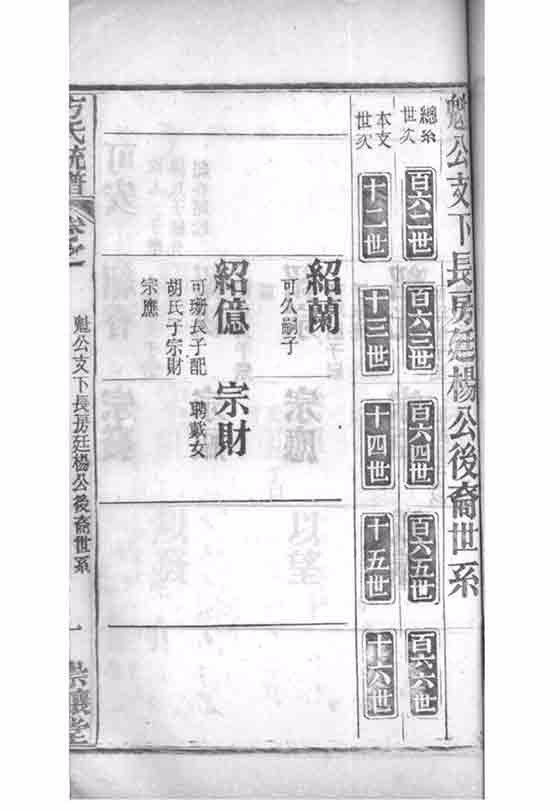 魁公支下長房廷楊公後裔世系
總系世次
百六二世
百六三世
百六四世
百六五世
百六六世
本支世次
十二世
十三世
十四世
十五世
十六世
紹蘭
可久嗣子
紹億
可珊長子配
胡氏子宗財
宗應
宗財
聘戴女
方氏統譜
卷之一
魁公支下長房廷楊公後裔世系
一